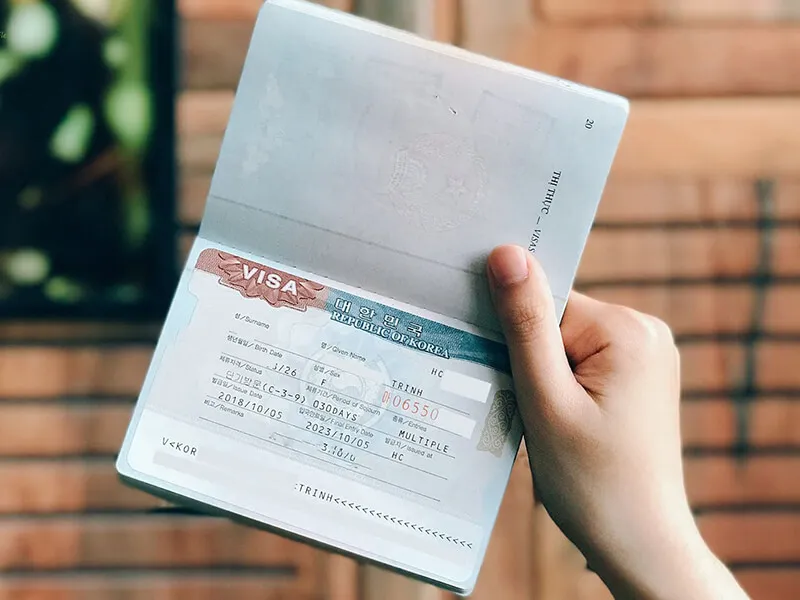 20
THỊ THỰC – VISAS
VISA
대한민국
REPUBLIC OF KOREA
성/Surname
명/Given Name
HC
TRINH
생년월일/Birth Date
성별/Sex
1/26
F
06550
체류자격/Status
체류기간/Period of Sojourn
종류/Entries
단기방문(C-3-9)
030DAYS
MULTIPLE
발급일/Issue Date
입국만료일/Final Entry Date
발급지/Issued at
2018/10/05
2023/10/05
HC
비고/Remarks
V<KOR
:TRINH<<<<<<<<<<<<<<<<<<<<<<